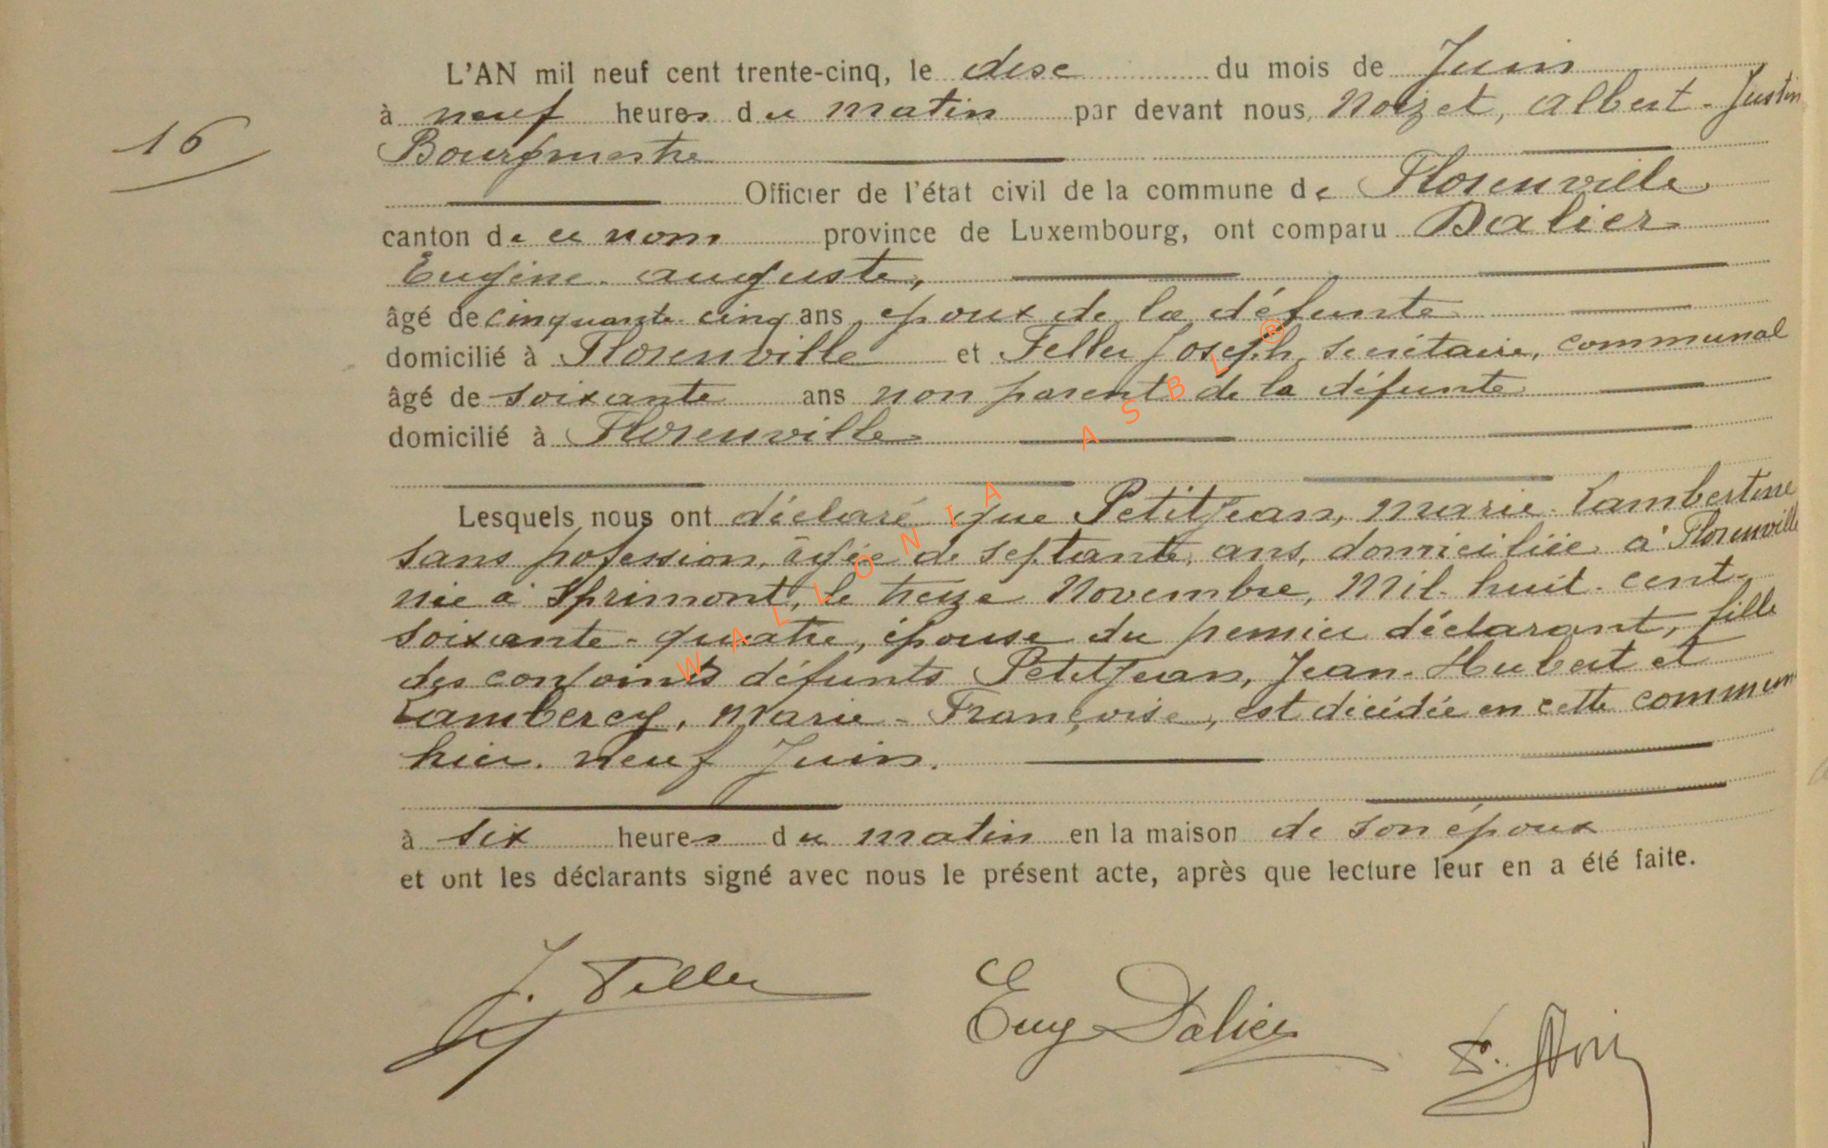 L'AN mil neuf cent trente-cinq, le dise du mois de Juin
à neuf heures du matin par devant nous, Noizet, Albert-Justin
16
Bourgmestre
Officier de l'état civil de la commune de Florenville
canton de ce nom province de Luxembourg, ont comparu Dalier
Eugène-auguste,
âgé de cinquante-cinq ans, époux de la défunte
domicilié à Florenville et Feller Joseph, secrétaire, communal
âgé de soixante ans non parent de la défunte
domicilié à Florenville
Lesquels nous ont déclaré que Petitjean, Marie-Lambertine
sans pofession, âgée de septante, ans, domiciliée à Florenville
née à Sprimont, le treize Novembre, Mil-huit-cent-
soixante-quatre, épouse du premier déclarant, fille
des conjoints défunts Petitjean, Jean-Hubert et
Lambercy, Marie-Françoise, est décédée en cette commune
hier, neuf Juin.
à six heures du matin en la maison de son époux
et ont les déclarants signé avec nous le présent acte, après que lecture leur en a été faite.
J. Feller
Eug Dalier
WALLONIA ASBL ®